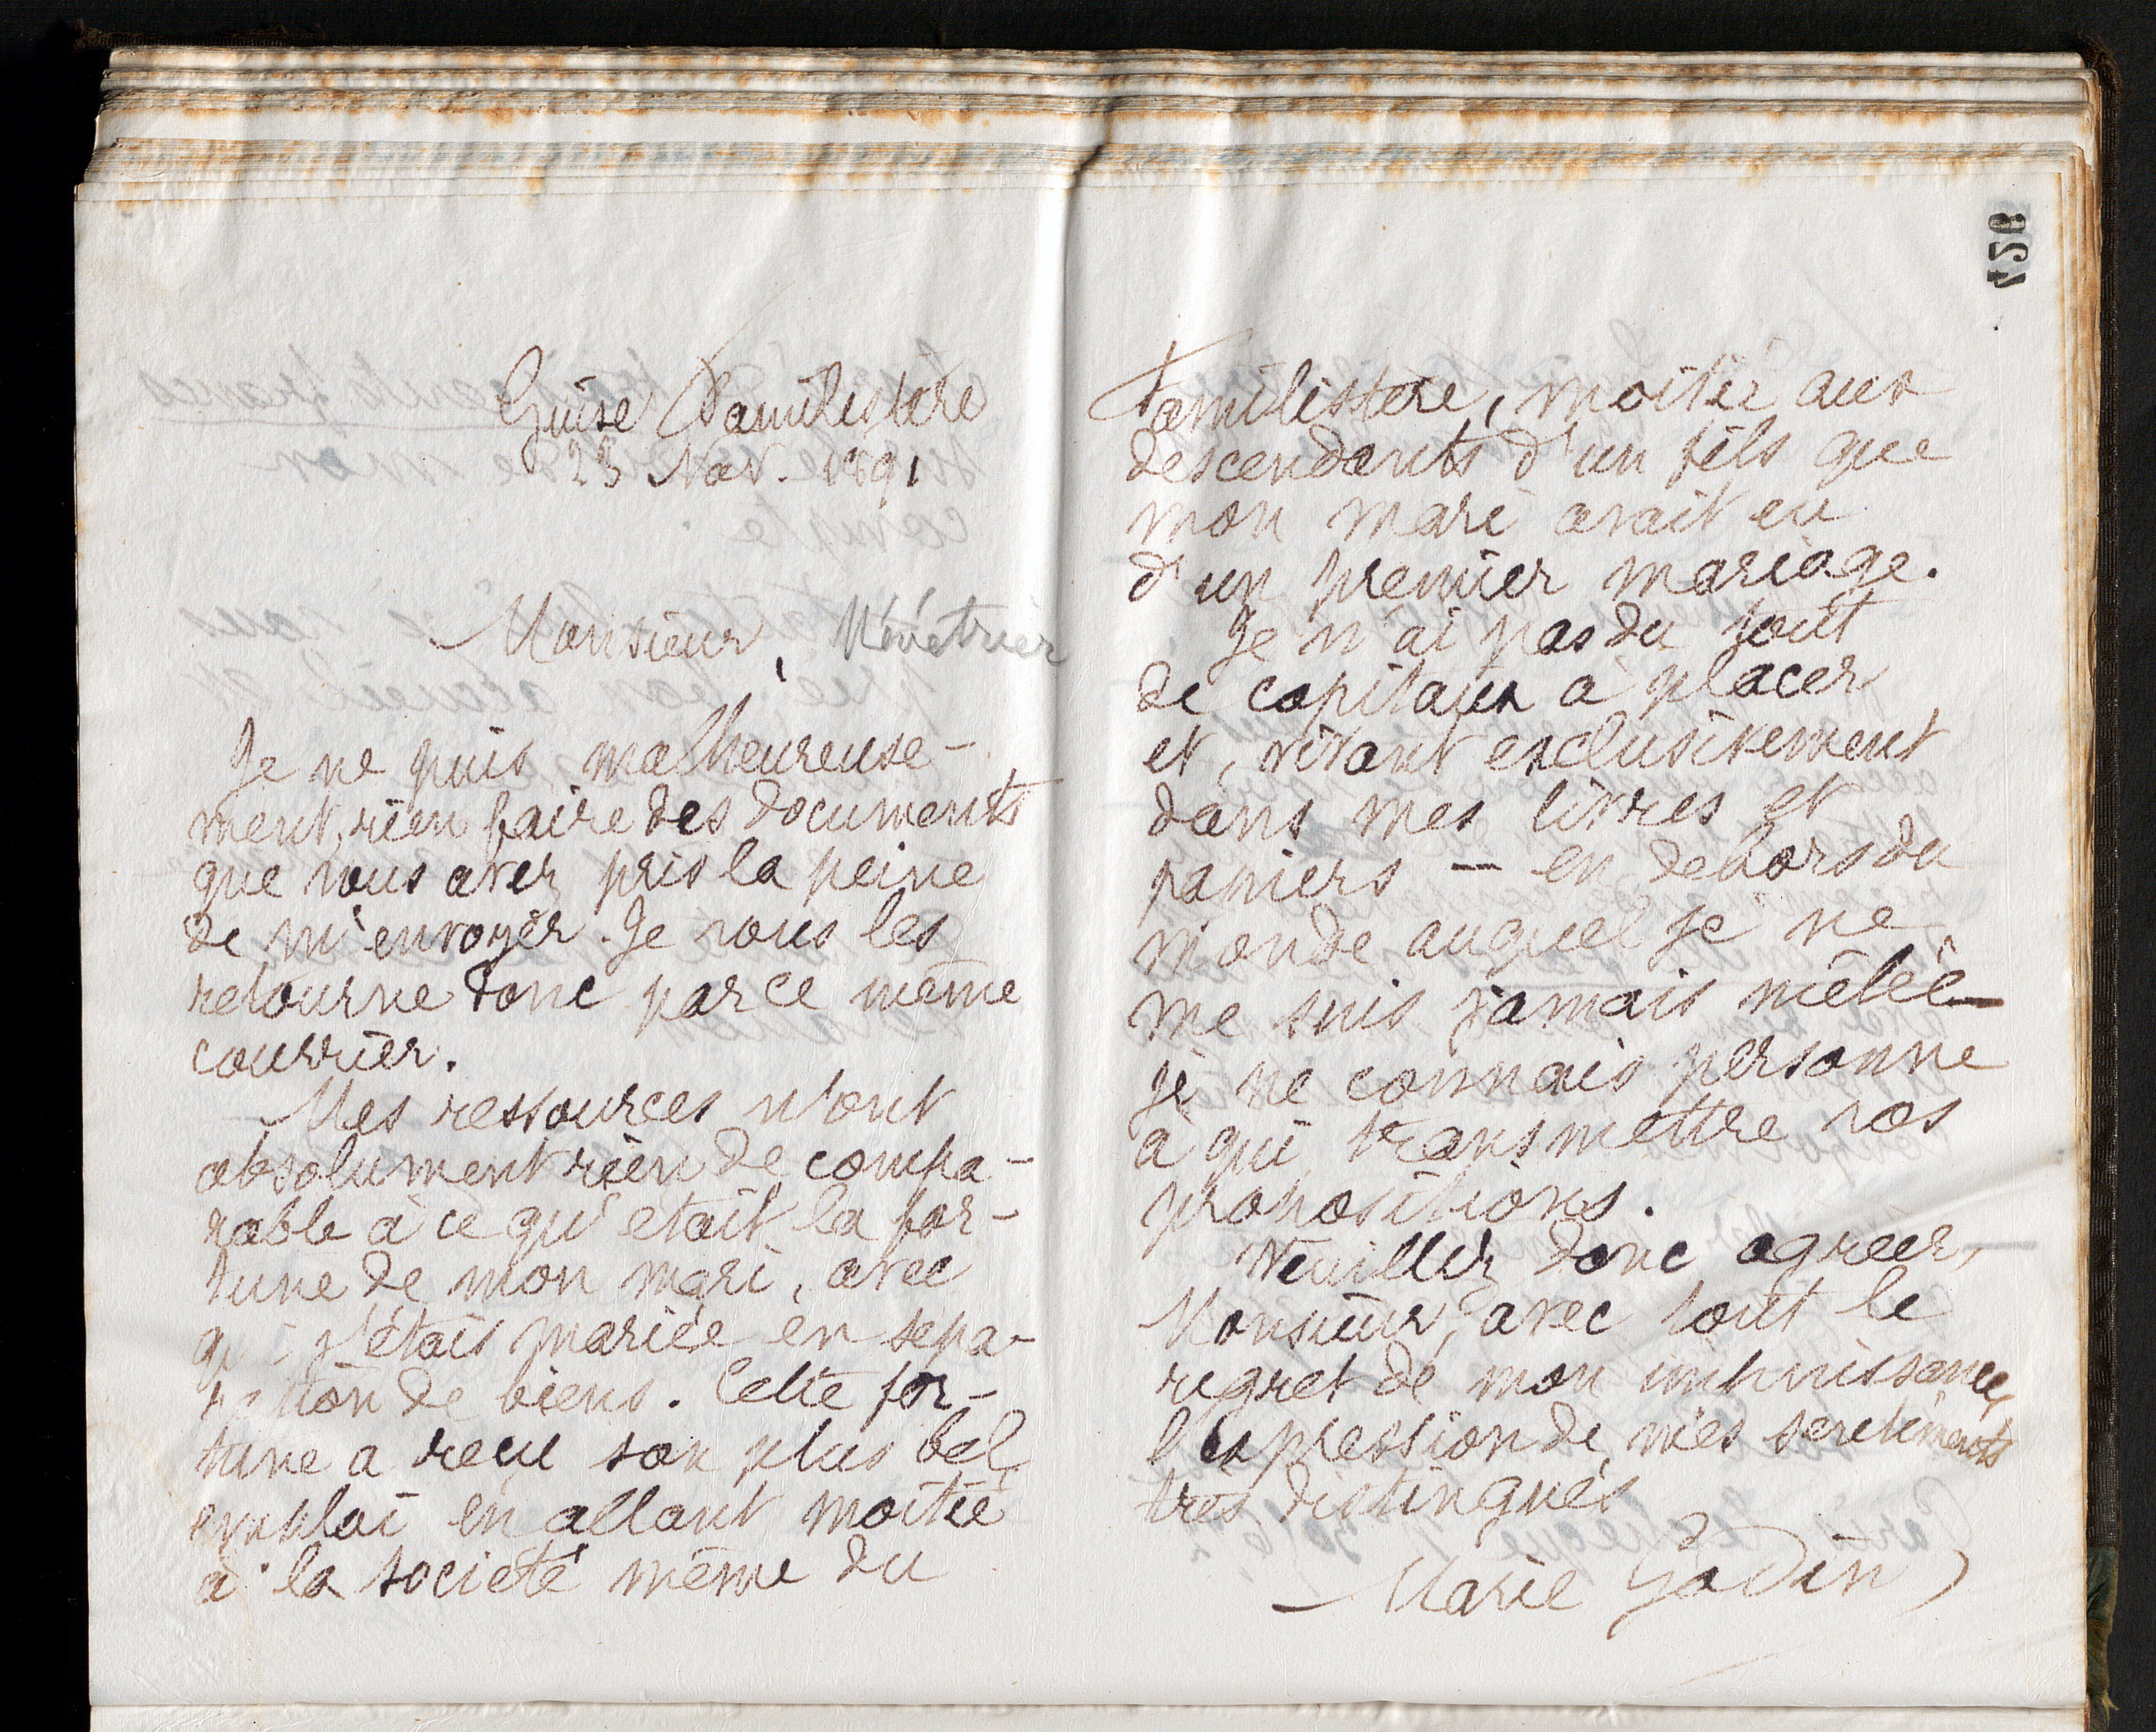 Guise Familistère
23 Nov. 1891
Monsieur, Ménétrier
Je ne puis, malheureuse-
ment, rien faire des documents
que vous avez pris la peine
de m'envoyer. Je vous les
retourne donc par ce même
courrier.
Mes ressources n'ont
absolument rien de compa-
rable à ce qu'était la for-
tune de mon mari, avec
qui j'étais mariée en sépa-
ration de biens. Cette for-
tune a reçu son plus bel
emploi en allant moitié
à la société même du
428
Familistère, moitié aux
descendants d'un fils que
mon mari avait eu
d'un premier mariage.
Je n'ai pas du tout
de capitaux à placer
et, vivant exclusivement
dans mes livres et
papiers — en dehors du
monde auquel je ne
me suis jamais mêlée —
je ne connais personne
à qui transmettre vos
propositions.
Veuillez donc agréer,
Monsieur, avec tout le
regret de mon impuissance,
l'expression de mes sentiments
très distingués
Marie Godin